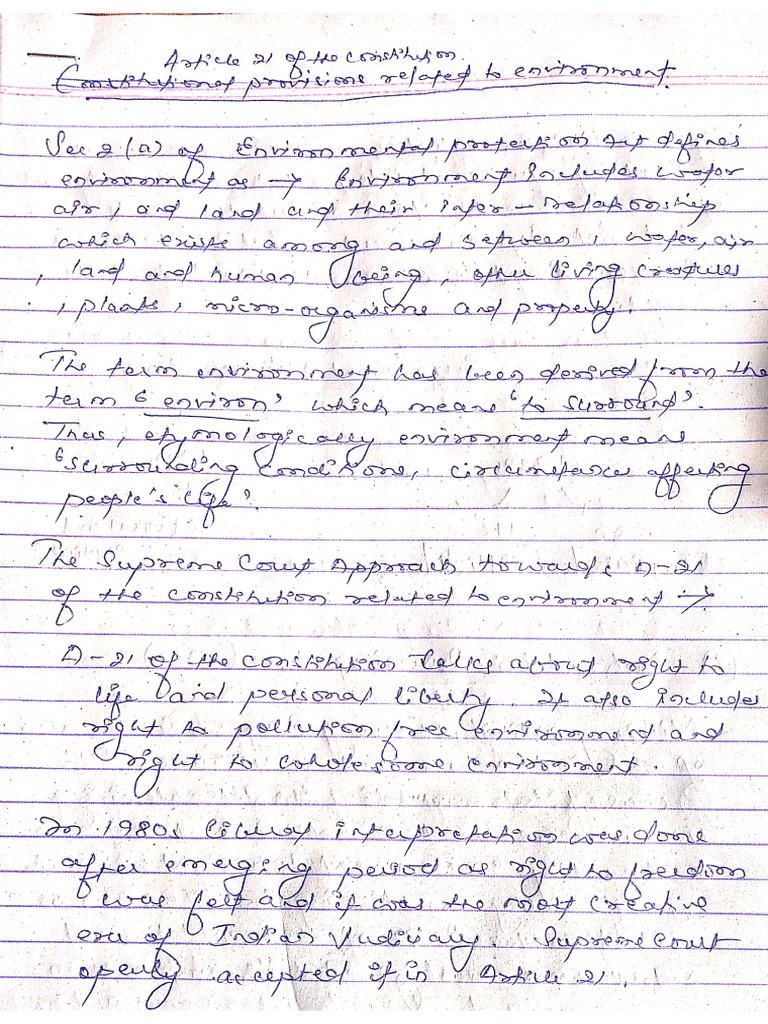 Article 21 of the constitution.
Constitutional provisions related to environment.
Sec 2(a) of Environmental protection Act defines
environment as → Environment includes water
air, and land and their inter-relationship
which exists among and between, water, air
, land and human being, other living creatures
, plants, micro-organisms and property.
The term environment has been derived from the
term 'environ' which means 'to surround'.
Thus, etymologically environment means
'surrounding conditions, circumstances affecting
people's life'.
The Supreme Court Approach towards A-21
of the constitution related to environment →
A-21 of the constitution talks about right to
life and personal liberty. It also includes
right to pollution free environment and
right to wholesome environment.
In 1980s liberal interpretation was done
after emerging period as right to freedom
was felt and it was the most creative
era of Indian Judiciary. Supreme Court
openly accepted it in Article 21.